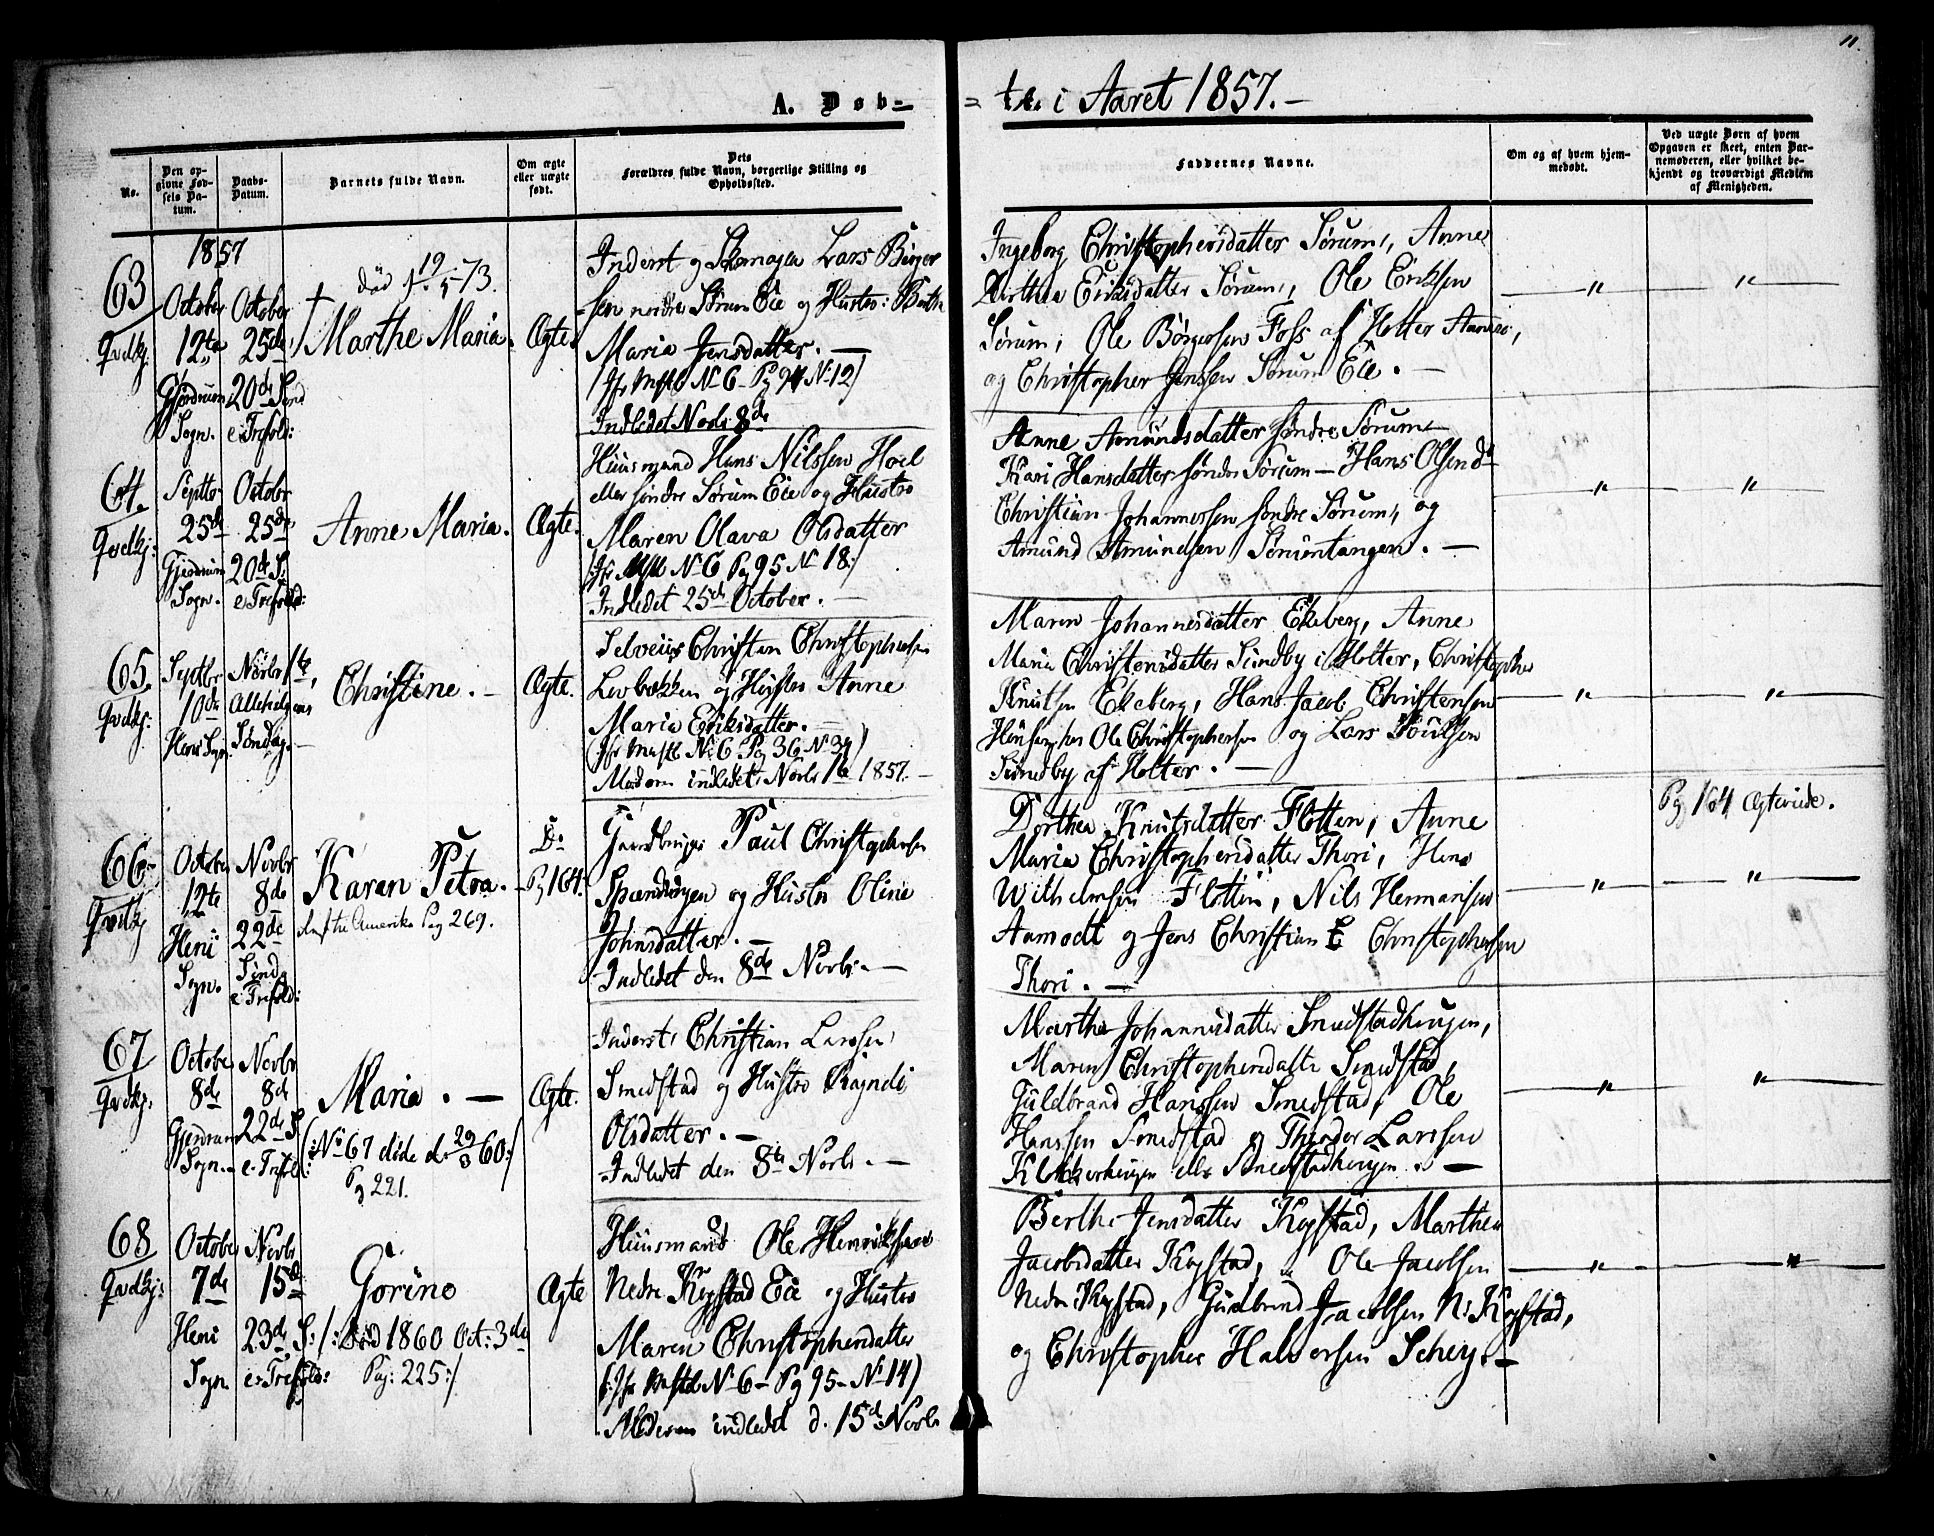 11.
A. Døb= = te i Aaret 1857.
No.
Den op-
givne Fød-
sels Da-
tum.
Daabs-
Datum.
Barnets fulde Navn.
Om ægte
eller uægte
født.
Dets
Forældres fulde Navn, borgerlige Stilling og
Opholdssted.
Faddernes Navne.
Om og af hvem hjem-
medøbt.
Ved uægte Børn af hvem
Opgaven er skeet, enten Bar-
nemoderen, eller hvilket be-
kjendt og troværdigt Medlem
af Menigheden.
1857
63
October
12te
Gjerdrum
Sogn.
October
25de
20de Sønd
e: Trefold:
død 19/5 73.
† Marthe Maria.
Ægte.
Inderst og Skomager Lars Börger
sen nordre Sørum Eie og Hustro: Berthe
Maria Jensdatter.
Jfr Mstb No 6 - Pg 94 No 12)
Indledet Novbr 8de
Ingeborg Christophersdatter Sørum, Anne
Dorthea Eriksdatter Sørum, Ole Eriksen
Sørum, Ole Börgersen Foss af Holter Annex,
og Christopher Jenssen Sørum Eie. —
64.
Septbr
25de
Gjerdrum
Sogn.
Octobr
25de
20de S:
e: Trefold:
Anne Maria.
Ægte.
Huusmand Hans Nilssen Hoel
eller søndre Sørum Eie og Hustro
Maren Olava Olsdatter
(Jfr Mstb No 6 Pg 95 No 18:/
Indledet 25de October. —
Anne Amundsdatter søndre Sørum
Kari Hansdatter søndre Sørum — Hans Olsen do
Christian Johannessen søndre Sørum, og
Amund Amundsen —
65.
Septbr
10de
Heni Sogn
Novbr 1te,
Allehelgens
Søndag. —
Christine. —
Ægte.
Selveier Christen Christophersen
Løvbækken og Hustro Anne
Maria Eriksdatter. —
(Jfr Mstb No 6 Pg 36 No 34)
Moderen indledet Novbr 1te 1857. —
Maren Johannesdatter Ekeberg, Anne
Maria Christensdatter Sundby i Holter, Christopher
Knutsen Ekeberg, Hans Jacob Christensen
Ole Christophersen og Lars Poulsen
Sundby af Holter. —
66
October
12te
Heni
Sogn.
Novbr
8de
22de
Sønd
e: Trefold:
Karen Petra. —
Amerika Pag 269.
Do
Pg 164.
Gaardbruger Paul Christophersen
og Hustro Oline
Johnsdatter. —
Indledet den 8de Novbr. —
Dorthea Knutsdatter Flotten, Anne
Maria Christophersdatter Thori, Hans
Wilhelmsen Flotten, Nils Hermansen
Aamodt og Jens Christian Christophersen
Thori. —
Pg 164 Ægteviede.
67
October
8de
Gjerdrum
Sogn.
Novbr
8de
22de S
e: Trefold:
Maria. —
(: No 67 døde d. 29/3 60:/
Pg 221.
Ægte.
Inderst Christian Larssen
Smedstad og Hustro Ragndi
Olsdatter. —
Indledet den 8de Novbr. —
Marthe Johannesdatter Smedstadhaugen,
Maren Christophersdatter Smedstad,
Guldbrand Hanssen Smedstad, Ole
Hanssen Smedstad og Theodor Larssen
Klokkerhaugen eller Smedstadhaugen. —
68
October
7de
Heni
Sogn
Novbr
15de
23de S:
e: Trefold:
Gorine
/: Død 1860 Oct: 3de
Pag: 225:/
Ægte
Huusmand Ole Henriksen
Nedre Kogstad Eie og Hustro
Maren Christophersdatter
(:Jfr Mstb No 6 - Pg 95 - No 14)
Moderen indledet d. 15de Novbr
Berthe Jensdatter Kogstad, Marthe
Jacobsdatter Kogstad, Ole Jacobsen
Nedre Kogstad, Gundbrand Jacobsen N: Kogstad,
og Christopher Halvorsen Schey. —